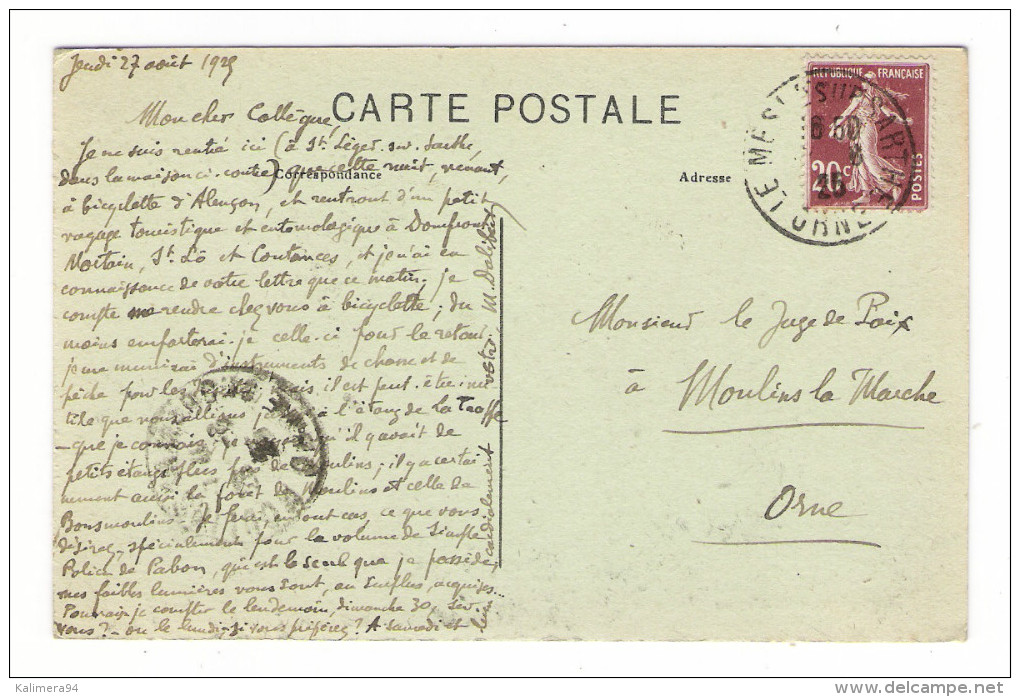 Jeudi 27 août 1925
CARTE POSTALE
Mon cher Collègue,
Je ne suis rentré ici (à St Léger-sur-Sarthe,
dans la maison ci-contre) que cette nuit, venant,
Correspondance
Adresse
à bicyclette d'Alençon, et rentrant d'un petit
voyage touristique et entomologique à Domfront
Mortain, St Lô et Coutances, et je n'ai eu
connaissance de votre lettre que ce matin. je
compte me rendre chez vous à bicyclette; du
moins emporterai-je celle-ci pour le retour.
je me munirai d'instruments de chasse et de
pêche pour les mais il est peut-être inu
tile que nous allions à l'étang de la Trappe
- que je connais; qu'il y avait de
petits étangs plus près de Moulins; il y a certai
nement aussi la forêt de Moulins et celle de
Bonsmoulins. Je ferai, en tout cas, ce que vous
désirez, spécialement pour la volume de
Police de Pabon, qui est le seul que je possède,
mes faibles lumières vous sont, au surplus, acquises...
Pourrais-je compter le lendemain, dimanche 30,
vous? - ou le lundi, si vous préférez? A samedi et
cordialement votre M. Dalibert
REPUBLIQUE FRANÇAISE
20c
POSTES
LE MESLE-S-SARTHE
ORNE
25
Monsieur le Juge de Paix
à Moulins la Marche
Orne
Kalimera94
www.delcampe.net